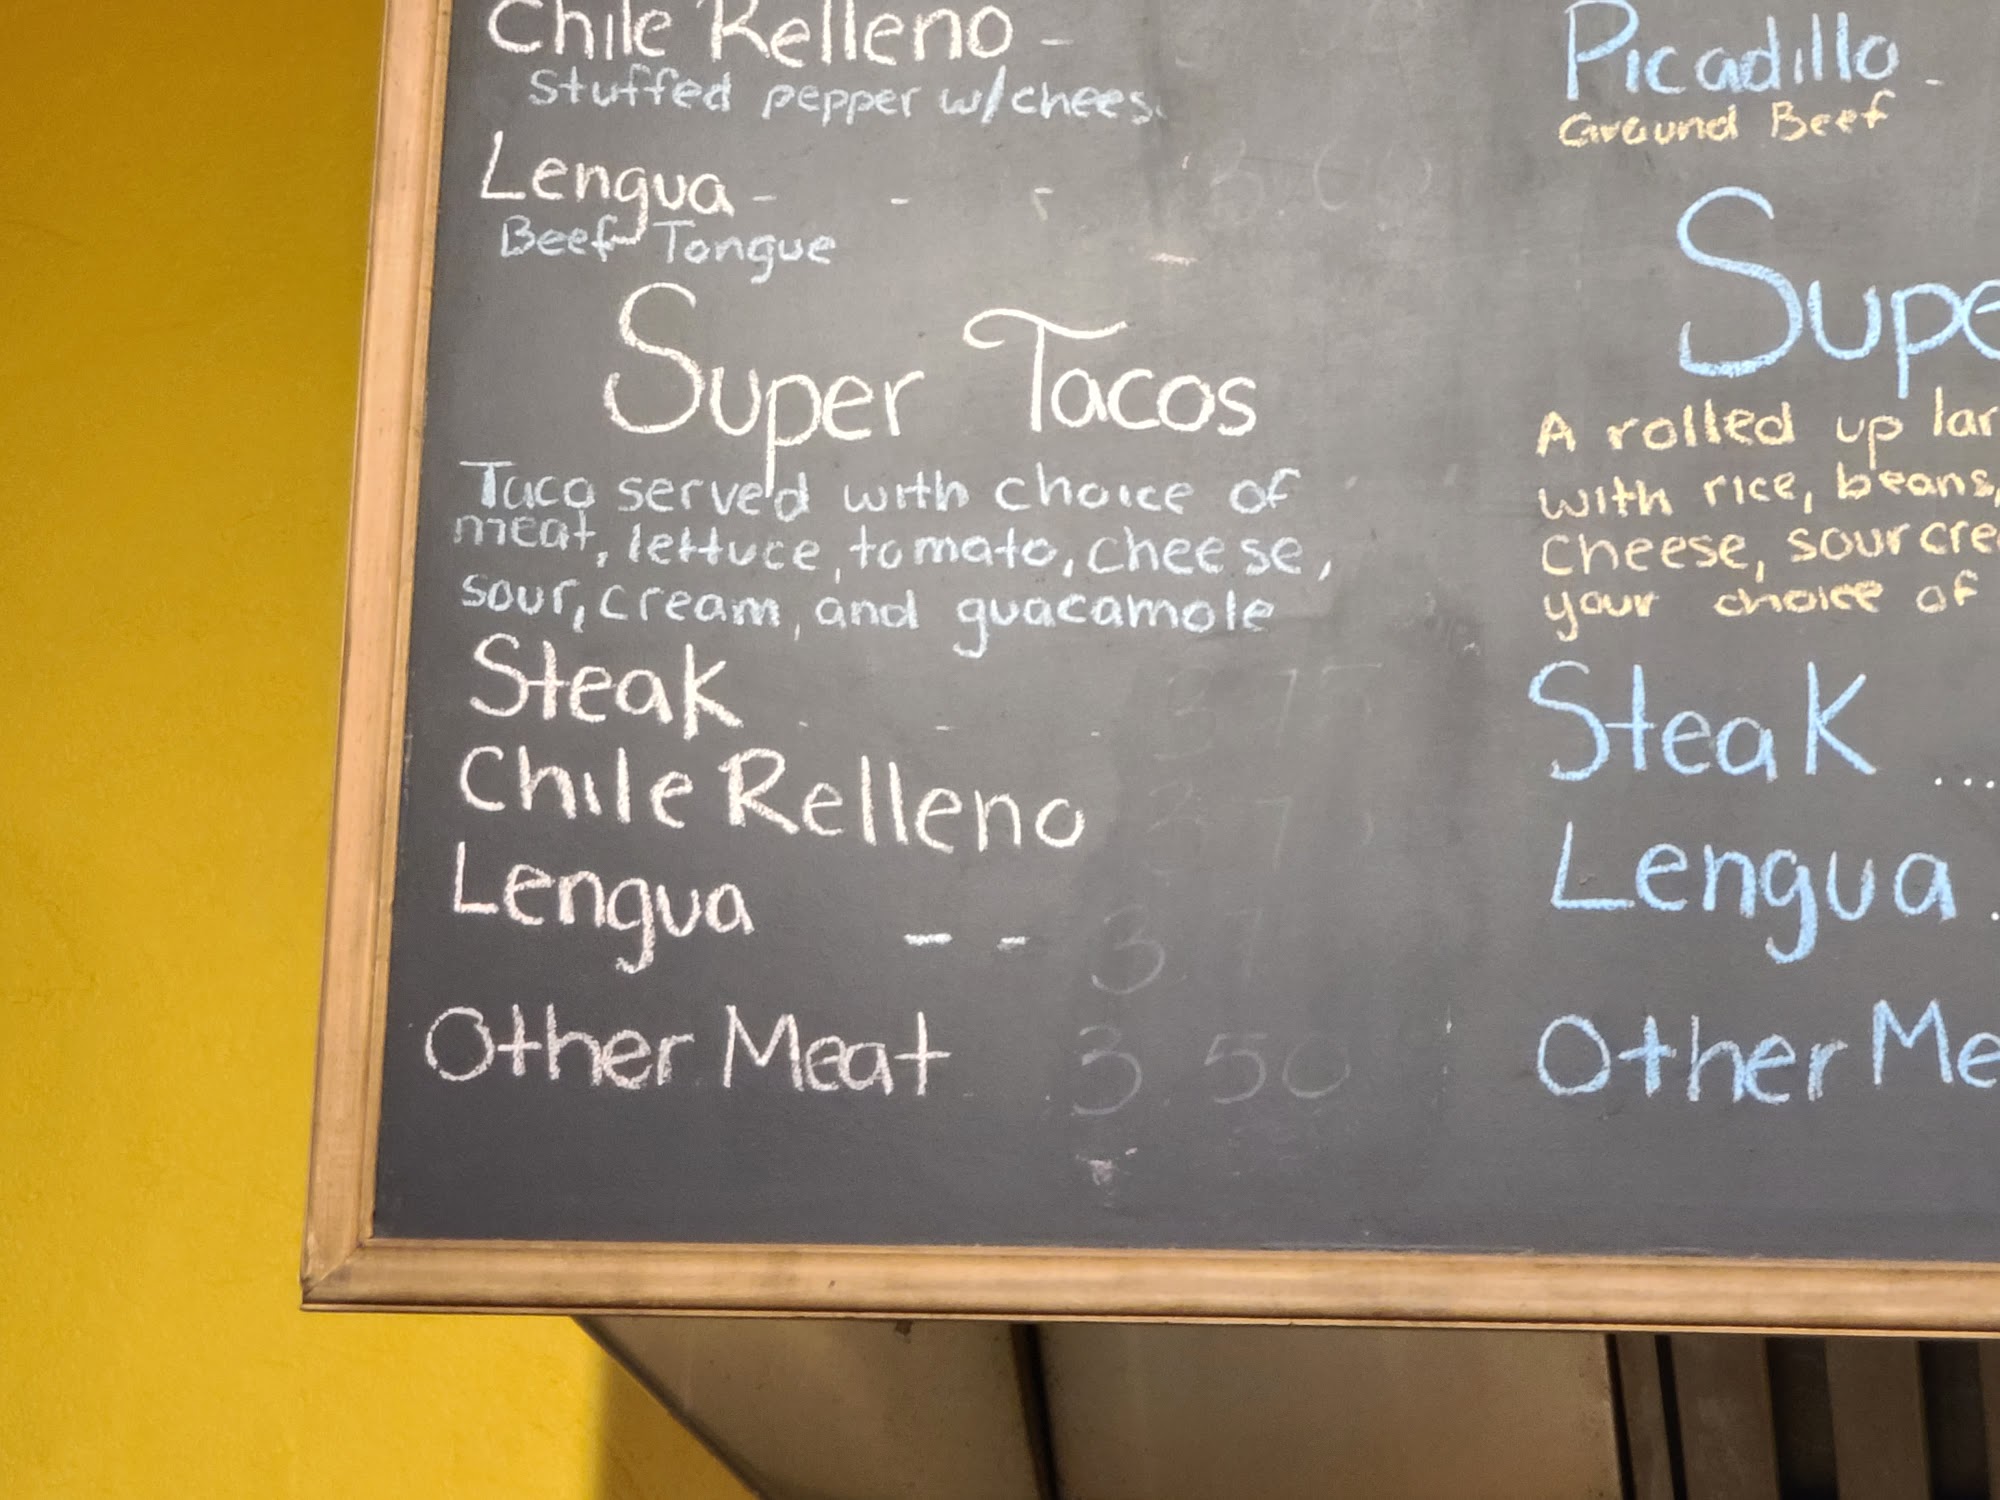 Chile Relleno -
Stuffed pepper w/chees
Lengua - - -
Beef Tongue
Super Tacos
Taco served with choice of
meat, lettuce, tomato, cheese,
sour, cream, and guacamole
Steak
Chile Relleno
Lengua - -
Other Meat 3.50
Picadillo -
Ground Beef
Supe
A rolled up lar
with rice, beans,
cheese, sour cre
your choice of
Steak ....
Lengua .
Other Me